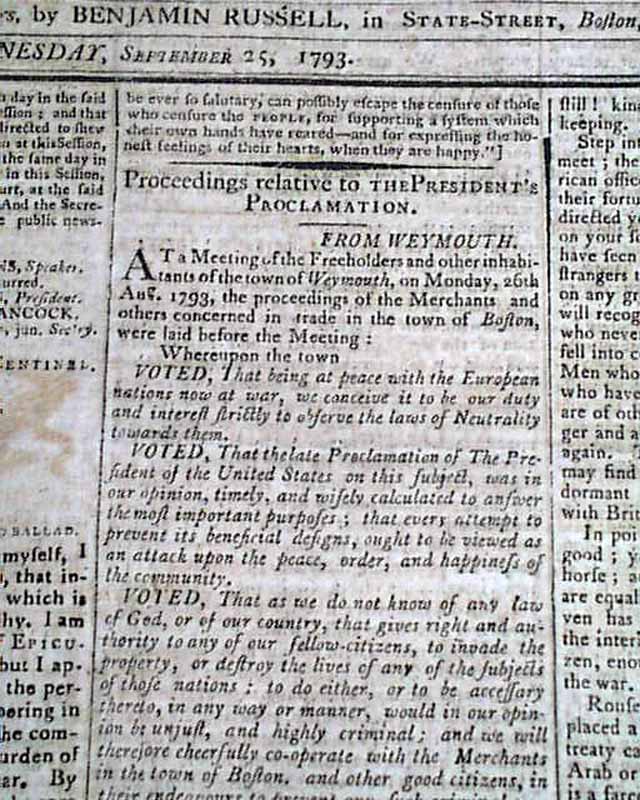 s, by BENJAMIN RUSSELL, in STATE-STREET, Boſton,
NESDAY, SEPTEMBER 25, 1793.
day in the ſaid
ſſion; and that
directed to ſhew
n at this Seſſion,
the ſame day in
in this Seſſion,
urt, at the ſaid
And the Secre-
e public news-
NS, Speaker.
urred.
, Preſident.
ANCOCK.
, jun. Sec'ry.
CENTINEL.
BALLAD.
myſelf, I
, that in-
which is
hy. I am
EPICU-
but I ap-
the per-
pearing in
he com-
urden of
ar. By
be ever ſo ſalutary, can poſſibly eſcape the cenſure of thoſe
who cenſure the PEOPLE, for ſupporting a ſyſtem which
their own hands have reared—and for expreſſing the ho-
neſt feelings of their hearts, when they are happy."]
Proceedings relative to THE PRESIDENT's
PROCLAMATION.
FROM WEYMOUTH.
AT a Meeting of the Freeholders and other inhabi-
tants of the town of Weymouth, on Monday, 26th
Aug. 1793, the proceedings of the Merchants and
others concerned in trade in the town of Boſton,
were laid before the Meeting:
Whereupon the town
VOTED, That being at peace with the European
nations now at war, we conceive it to be our duty
and intereſt ſtrictly to obſerve the laws of Neutrality
towards them.
VOTED, That the late Proclamation of The Pre-
ſident of the United States on this ſubject, was in
our opinion, timely, and wiſely calculated to anſwer
the moſt important purpoſes; that every attempt to
prevent its beneficial deſigns, ought to be viewed as
an attack upon the peace, order, and happineſs of
the community.
VOTED, That as we do not know of any law
of God, or of our country, that gives right and au-
thority to any of our fellow-citizens, to invade the
property, or deſtroy the lives of any of the ſubjects
of thoſe nations: to do either, or to be acceſſary
thereto, in any way or manner, would in our opin-
ion be unjuſt, and highly criminal; and we will
therefore cheerfully co-operate with the Merchants
in the town of Boſton, and other good citizens, in
their endeavours to prevent any ſuch
ſtill! kin
keeping.
Step int
meet; the
rican office
their fortu
directed y
on your ſ
have ſeen
ſtrangers t
on any gr
will recog
who neve
fell into c
Men who
who have
are of oth
ger and a
again.
may find
dormant
with Brit
In poi
good; y
horſe; a
are equal
ven has
the inter
zen, eno
the war.
Rouſe
placed a
treaty ca
Arab or
is a farc